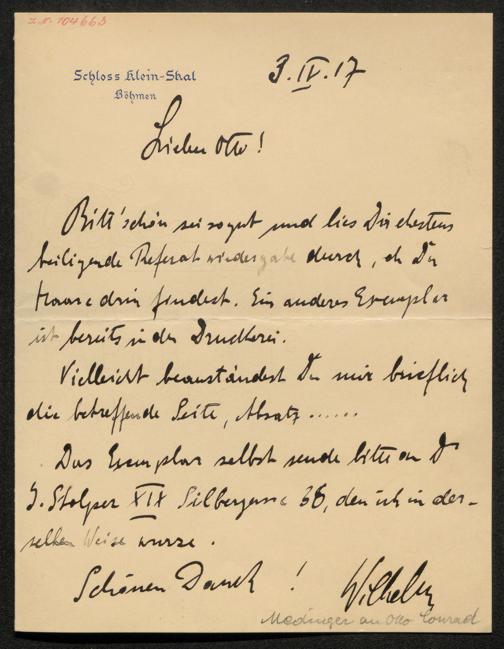 Z.N. 104663
Schloss Klein-Skal
Böhmen
3.IV.17
Lieber Otto!
Bitt'schön sei so gut und lies Dir ehestens
beiligende Referatwiedergabe durch, ob Du
Haare drin findest. Ein anderes Exemplar
ist bereits in der Druckerei.
Vielleicht beanständest Du mir brieflich
die betreffende Seite, Absatz......
Das Exemplar selbst sende bitte an Dr
G. Stolper XIX Silbergasse 38, den ich in der-
selben Weise
Schönen Dank ! Wilhelm
Medinger an Otto Conrad